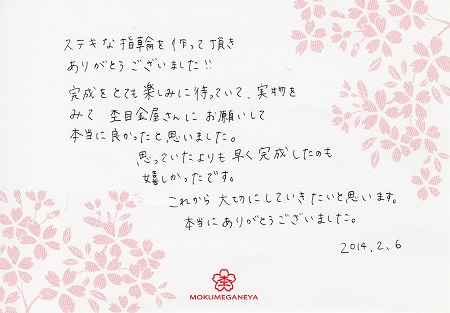 ステキな指輪を作って頂き
ありがとうございました!!
完成をとても楽しみに待っていて、実物を
みて 杢目金屋さんに お願いして
本当に良かったと思いました。
思っていたよりも 早く完成したのも
嬉しかったです。
これから 大切にしていきたいと思います。
本当にありがとうございました。
2014.2.6
杢
MOKUMEGANEYA